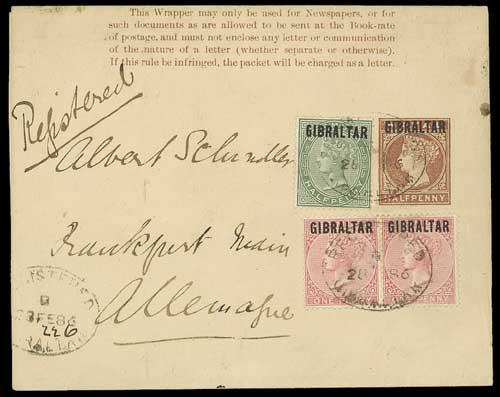 This Wrapper may only be used for Newspapers, or for
such documents as are allowed to be sent at the Book-rate
of postage, and must not enclose any letter or communication
of the nature of a letter (whether separate or otherwise).
If this rule be infringed, the packet will be charged as a letter.
Registered
GIBRALTAR GIBRALTAR
HALFPENNY HALFPENNY
Albert Schindler
GIBRALTAR GIBRALTAR
28 86
ONE PENNY
Frankfurt Main
Allemagne
FE 86
226